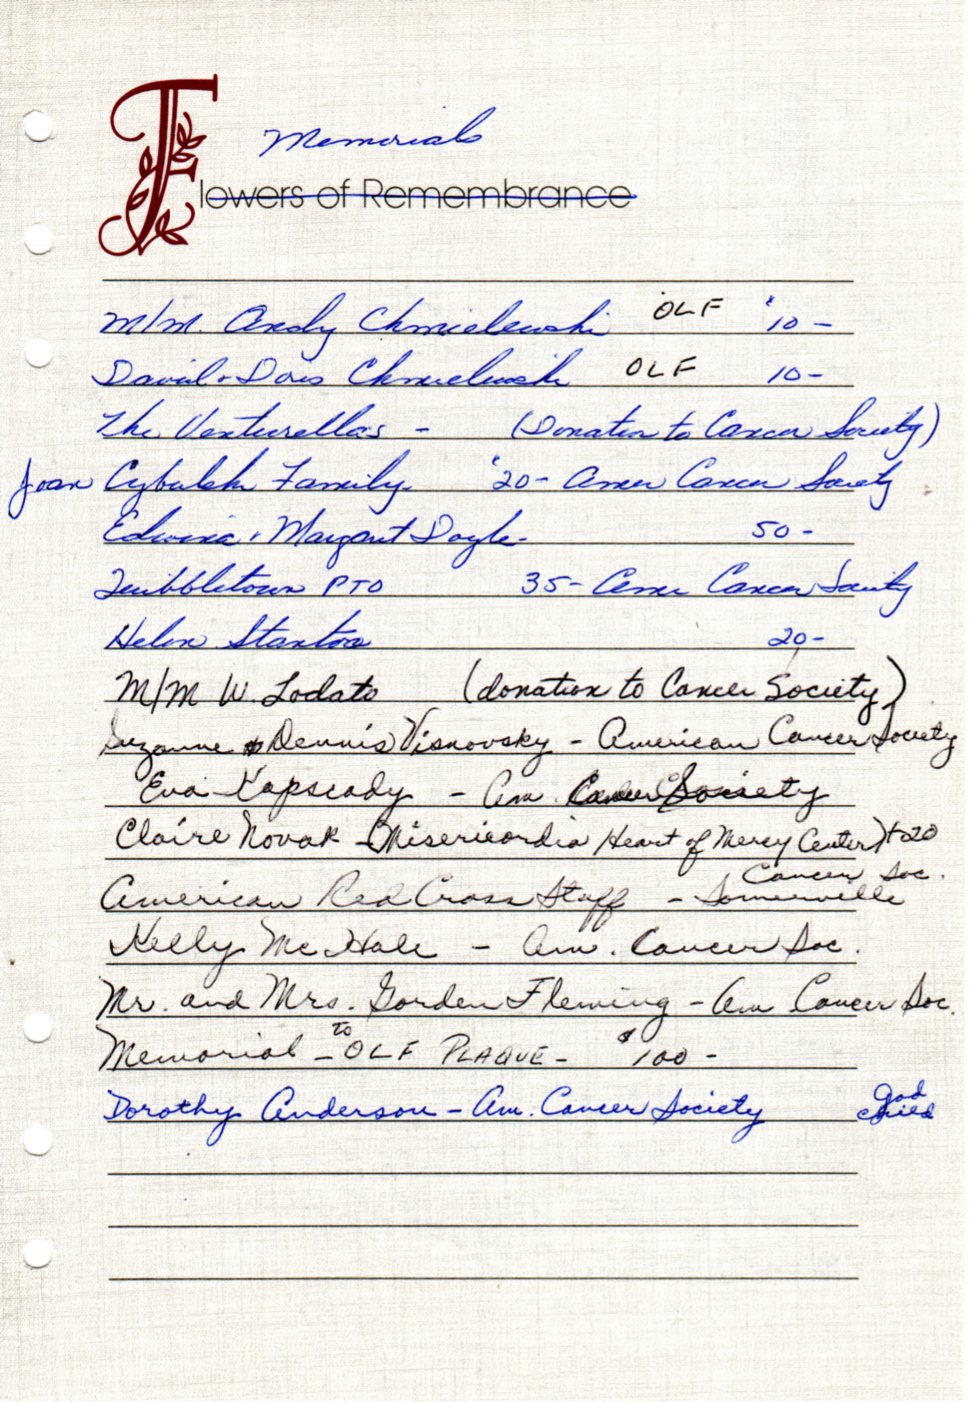 Memorials
Flowers of Remembrance
M/M. Andy Chmielewski OLF $10-
David + Doris Chmielewski OLF 10-
The Venturellas - (Donation to Cancer Society)
Joan Cybulski Family $20- Amer Cancer Society
Edwina + Margaret Doyle- 50-
PTO 35- Amer Cancer Society
Helen Stanton 20-
M/M W. Lodato (donation to Cancer Society)
Suzanne & Dennis Visnovsky - American Cancer Society
Eva Kapscady - Am. Cancer Society
Claire Novak - (Misericordia Heart of Mercy Center) $20
American Red Cross Staff - Cancer Soc. Somerville
Kelly McHale - Am. Cancer Soc.
Mr. and Mrs. Gorden Fleming - Am Cancer Soc.
Memorial - to OLF PLAQUE - $100 -
Dorothy Anderson - Am. Cancer Society God child